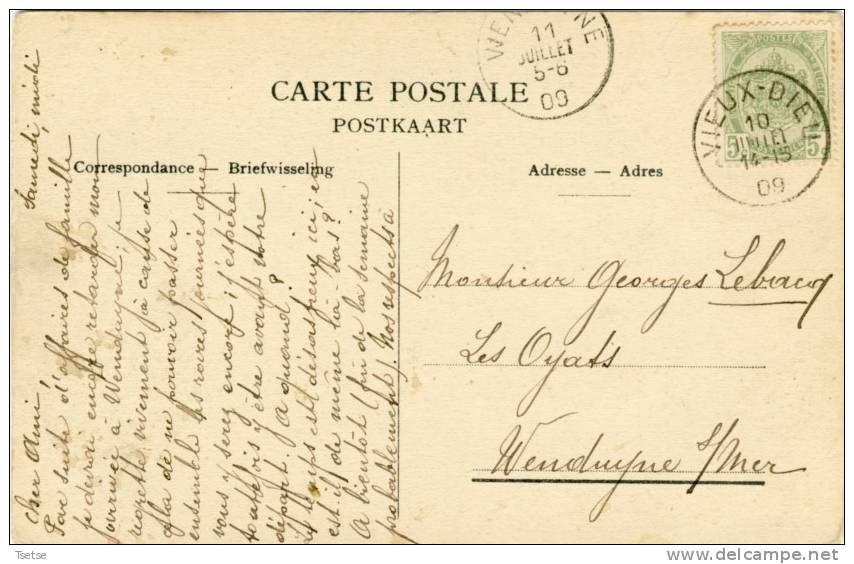 WEN
NE
11
JUILLET
5-6
09
POSTES
5
5
VIEUX-DIEU
10
JUILLET
14-15
09
CARTE POSTALE
POSTKAART
Correspondance — Briefwisseling
Adresse — Adres
Samedi, midi
Cher Ami,
Par suite d'affaires de famille
je devrai encore retarder mon
arrivée à Wenduyne; je
regrette vivement à cause de
cela de ne pouvoir passer
ensemble les rares journées que
vous y serez encore; j'espère
toutefois y être avant votre
départ. A quand?
Le temps est désastreux ici; en
est-il de même là-bas?
A bientôt (fin de la semaine
probablement). Nos respects à
Monsieur Georges Lebacq
Les Oyats
Wenduyne s/Mer
Tsetse
delcampe.net